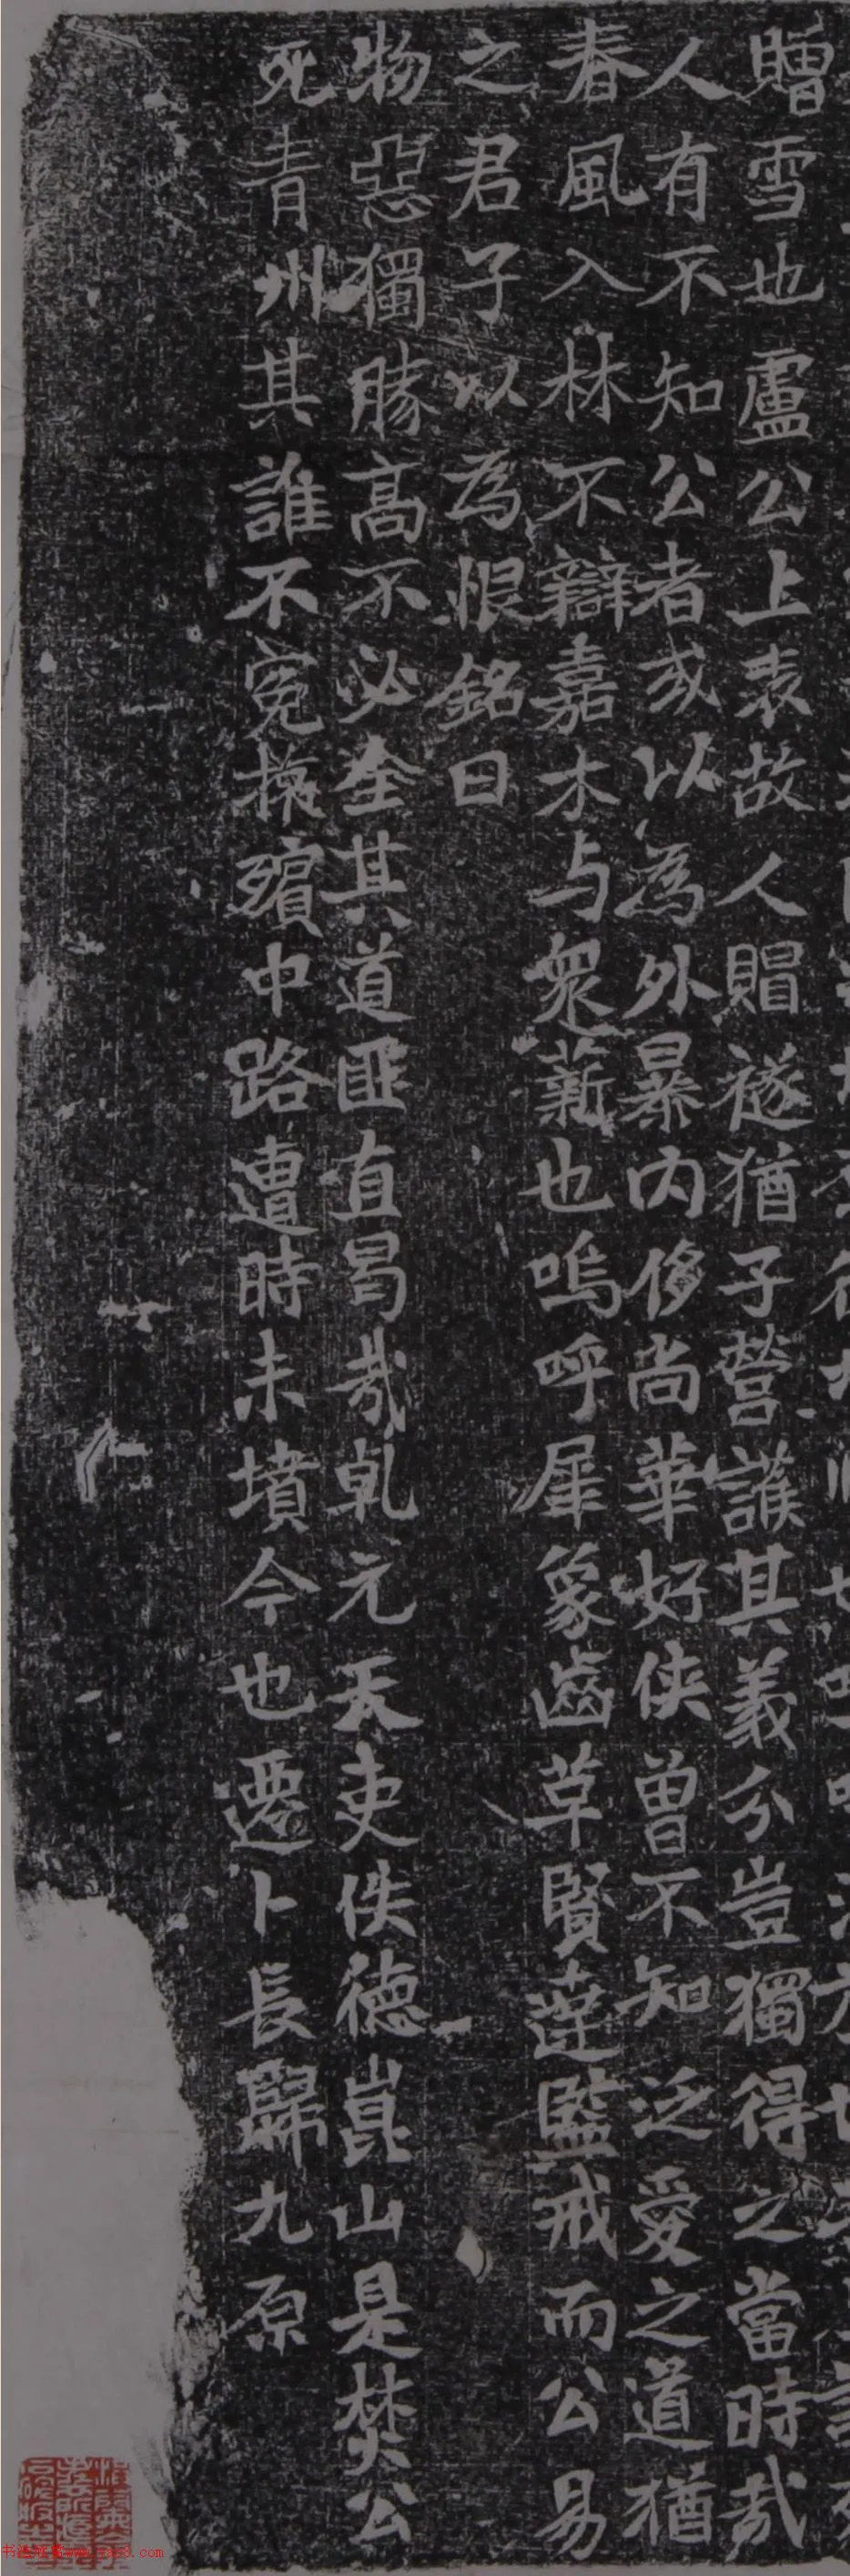 贈雪也盧公上表故人賵襚猶子營護其義分豈獨得之當時哉
人有不知公者或以為外暴内修尚華好俠曾不知泛愛之道猶
春風入林不辯嘉木与衆薪也嗚呼犀象齒草賢達監戒而公易
之君子以為恨銘曰
物惡獨勝高不必全其道匪直曷哉乹元天吏佚德崑山是焚公
死青州其誰不冤掞殯中路遭時未墳今也遷卜長歸九原